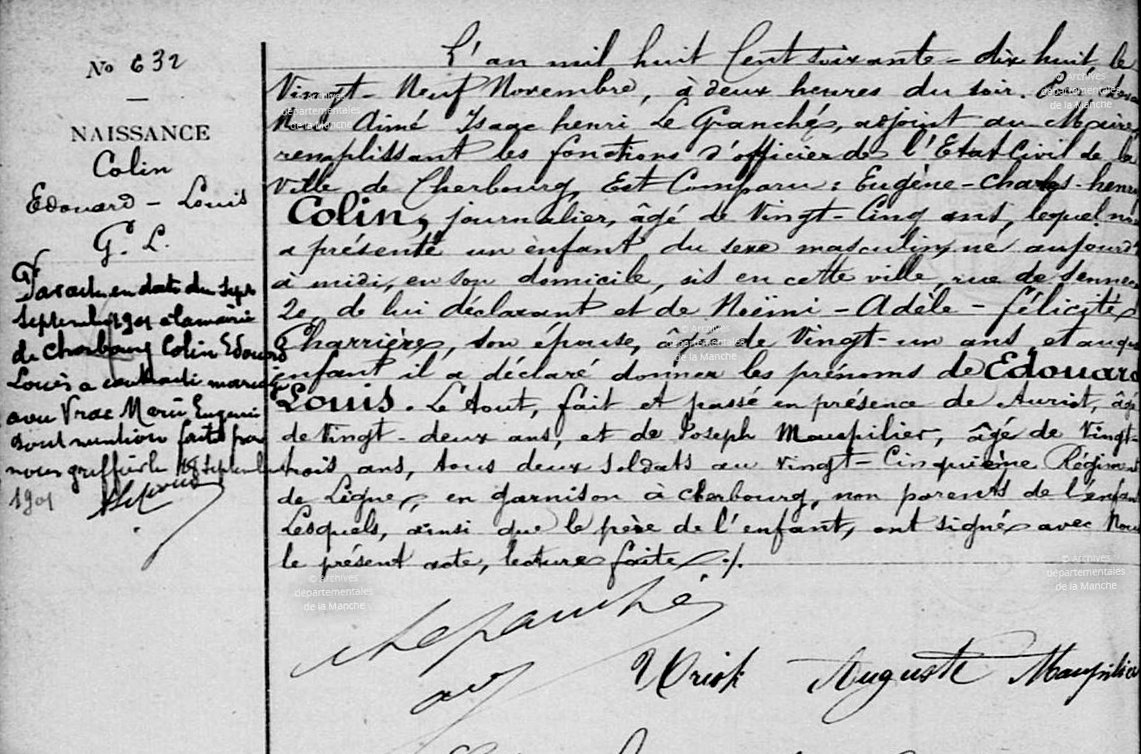 No 632
—
NAISSANCE
Colin
Edouard - Louis
G. L.
Par acte en date du sept
Septembre 1901 à la mairie
de Cherbourg Colin Edouard
Louis a contracté mariage
avec Vrac Marie Eugénie
dont mention faite par
nous greffier le 18 Septembre
1901
L'an mil huit Cent soixante - dix huit le
Vingt - Neuf Novembre, à deux heures du soir.
Aimé Isaac henri Le Granché, adjoint au Maire,
remplissant les fonctions d'officier de l'Etat Civil de la
Ville de Cherbourg, Est Comparu : Eugène - Charles - henri
Colin, journalier, âgé de Vingt - Cinq ans, lequel n
a présenté un enfant du sexe masculin, né aujourd
à midi, en son domicile, sis en cette ville, rue de
2, de lui déclarant et de Noëmi - Adèle - félicité
Charrière, son épouse, âgée de Vingt - un ans, et auqu
enfant il a déclaré donner les prénoms de Edouard
Louis. Le tout, fait et passé en présence de Auriot, âgé
de Vingt - deux ans, et de Joseph Maupilier, âgé de Vingt-
trois ans, tous deux soldats au Vingt - Cinquième Régiment
de Ligne, en garnison à cherbourg, non parents de l'enfant
Lesquels, ainsi que le père de l'enfant, ont signé avec Nous
le présent acte, lecture faite ./.
Auguste Maupilier
© Archives
départementales
de la Manche
© Archives
départementales
de la Manche
© Archives
départementales
de la Manche
© Archives
départementales
de la Manche
© Archives
départementales
de la Manche